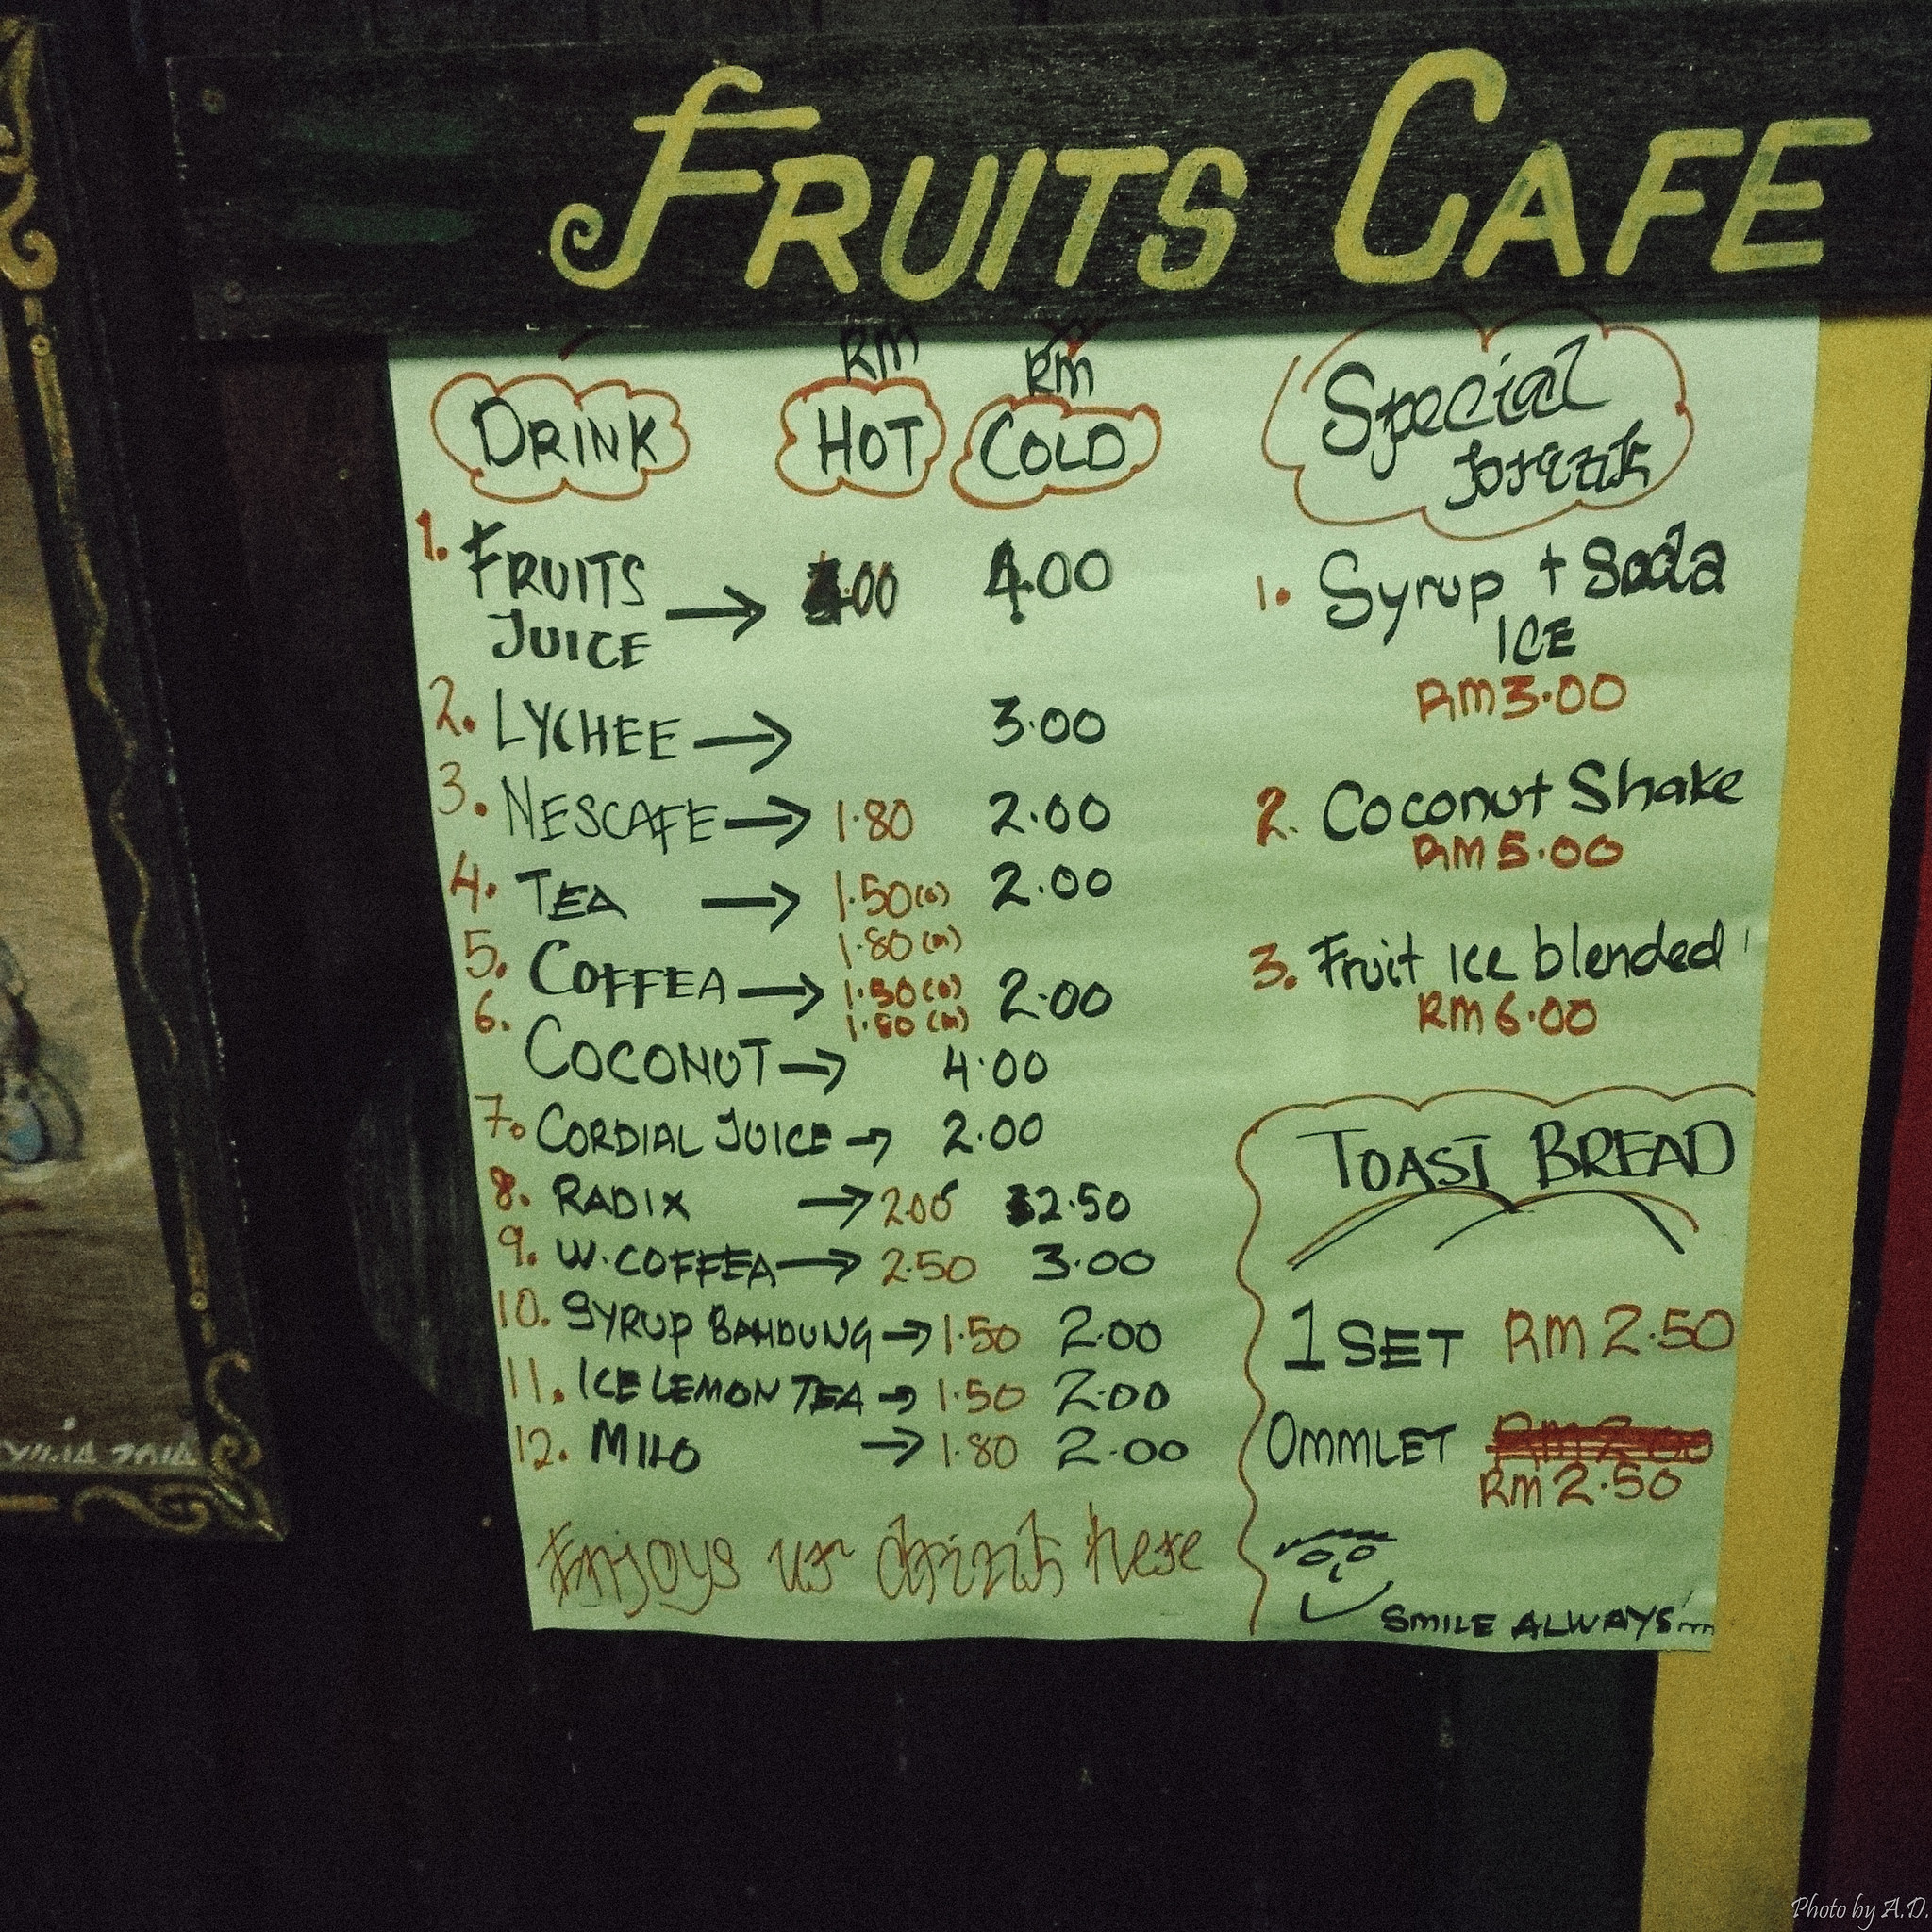 FRUITS CAFE
RM RM
DRINK HOT COLD
1. FRUITS JUICE → .00 4.00
2. LYCHEE → 3.00
3. NESCAFE → 1.80 2.00
4. TEA → 1.50(o) 2.00
1.80(m)
5. COFFEA → 1.50(o) 2.00
1.80(m)
6. COCONUT → 4.00
7. CORDIAL JUICE → 2.00
8. RADIX → 2.00 2.50
9. W.COFFEA → 2.50 3.00
10. SYRUP BANDUNG → 1.50 2.00
11. ICE LEMON TEA → 1.50 2.00
12. MILO → 1.80 2.00
Enjoys ur drink here
Special
break
1. Syrup + Soda
ICE
RM3.00
2. Coconut Shake
RM5.00
3. Fruit Ice blended
RM6.00
TOAST BREAD
1 SET RM2.50
OMMLET RM2.00
RM2.50
SMILE ALWAYS
Photo by A.D.